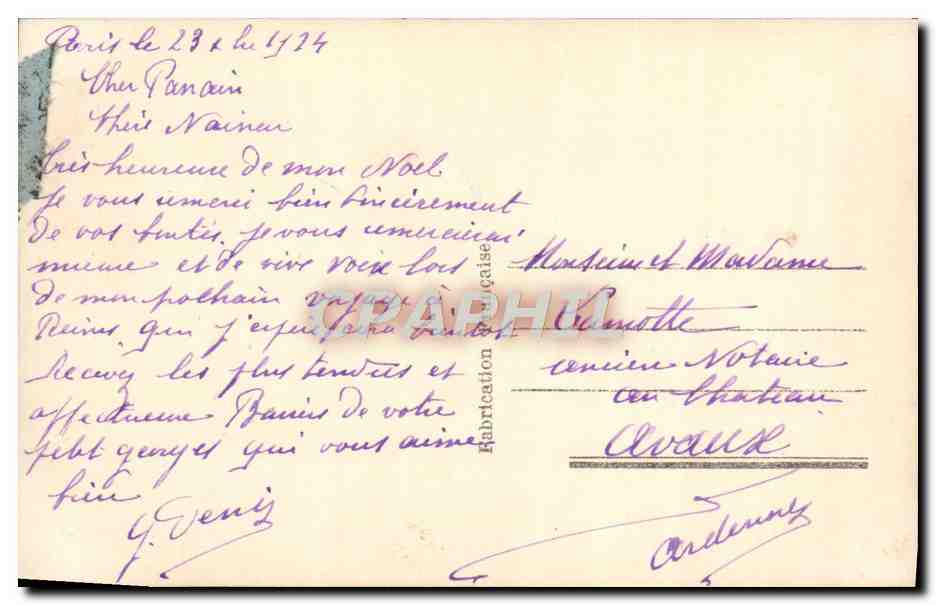 Paris le 23 xbre 1924
Cher Parrain
Chère Marraine
très heureuse de mon Noel
Je vous remercie bien sincèrement
de vos bontés. Je vous remercierai
même et de vive voix lors
de mon prochain voyage à
Reims que j'espère sera bientôt
Recevez les plus tendres et
affectueux Baisers de votre
petit georges qui vous aime
bien
G. Denis
Fabrication Française
CPAPHIL
Monsieur et Madame
Lamotte
ancien Notaire
au Chateau
Avaux
Ardennes